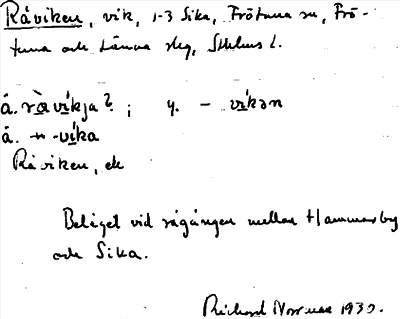 Råviken, vik, 1-3 Sika, Frötuna sn, Frö-
tuna och Länna skg, Sthlms l.
å. rå̀vík̯ja?; y. – víkən
å. –"– -víka
Råviken, ek
Beläget vid rågången mellan Hammarby
och Sika.
Rickard 1930.